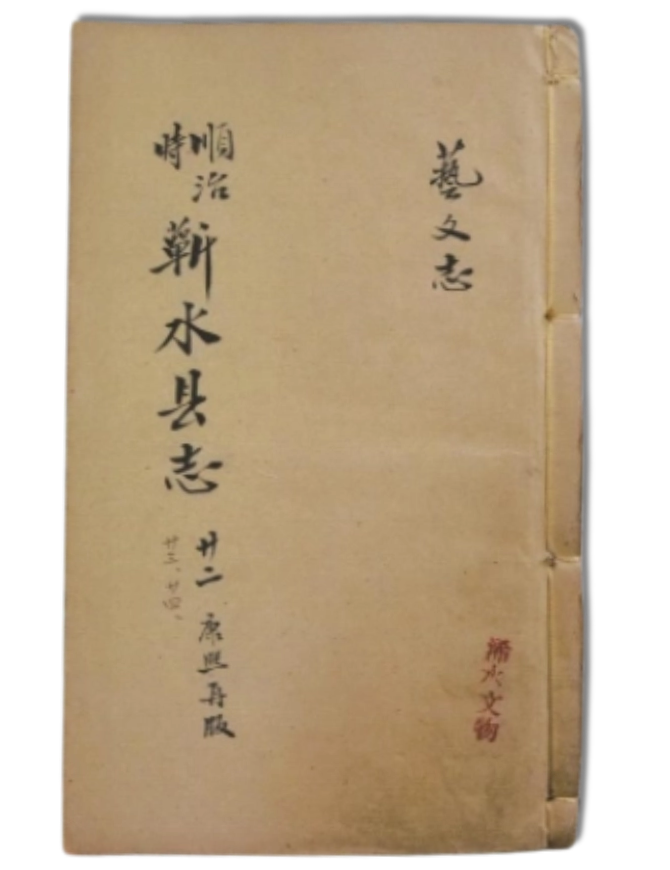 藝文志
順治
時
蘄水县志
廿二 康熙再版
廿三、廿四、
浠水文物